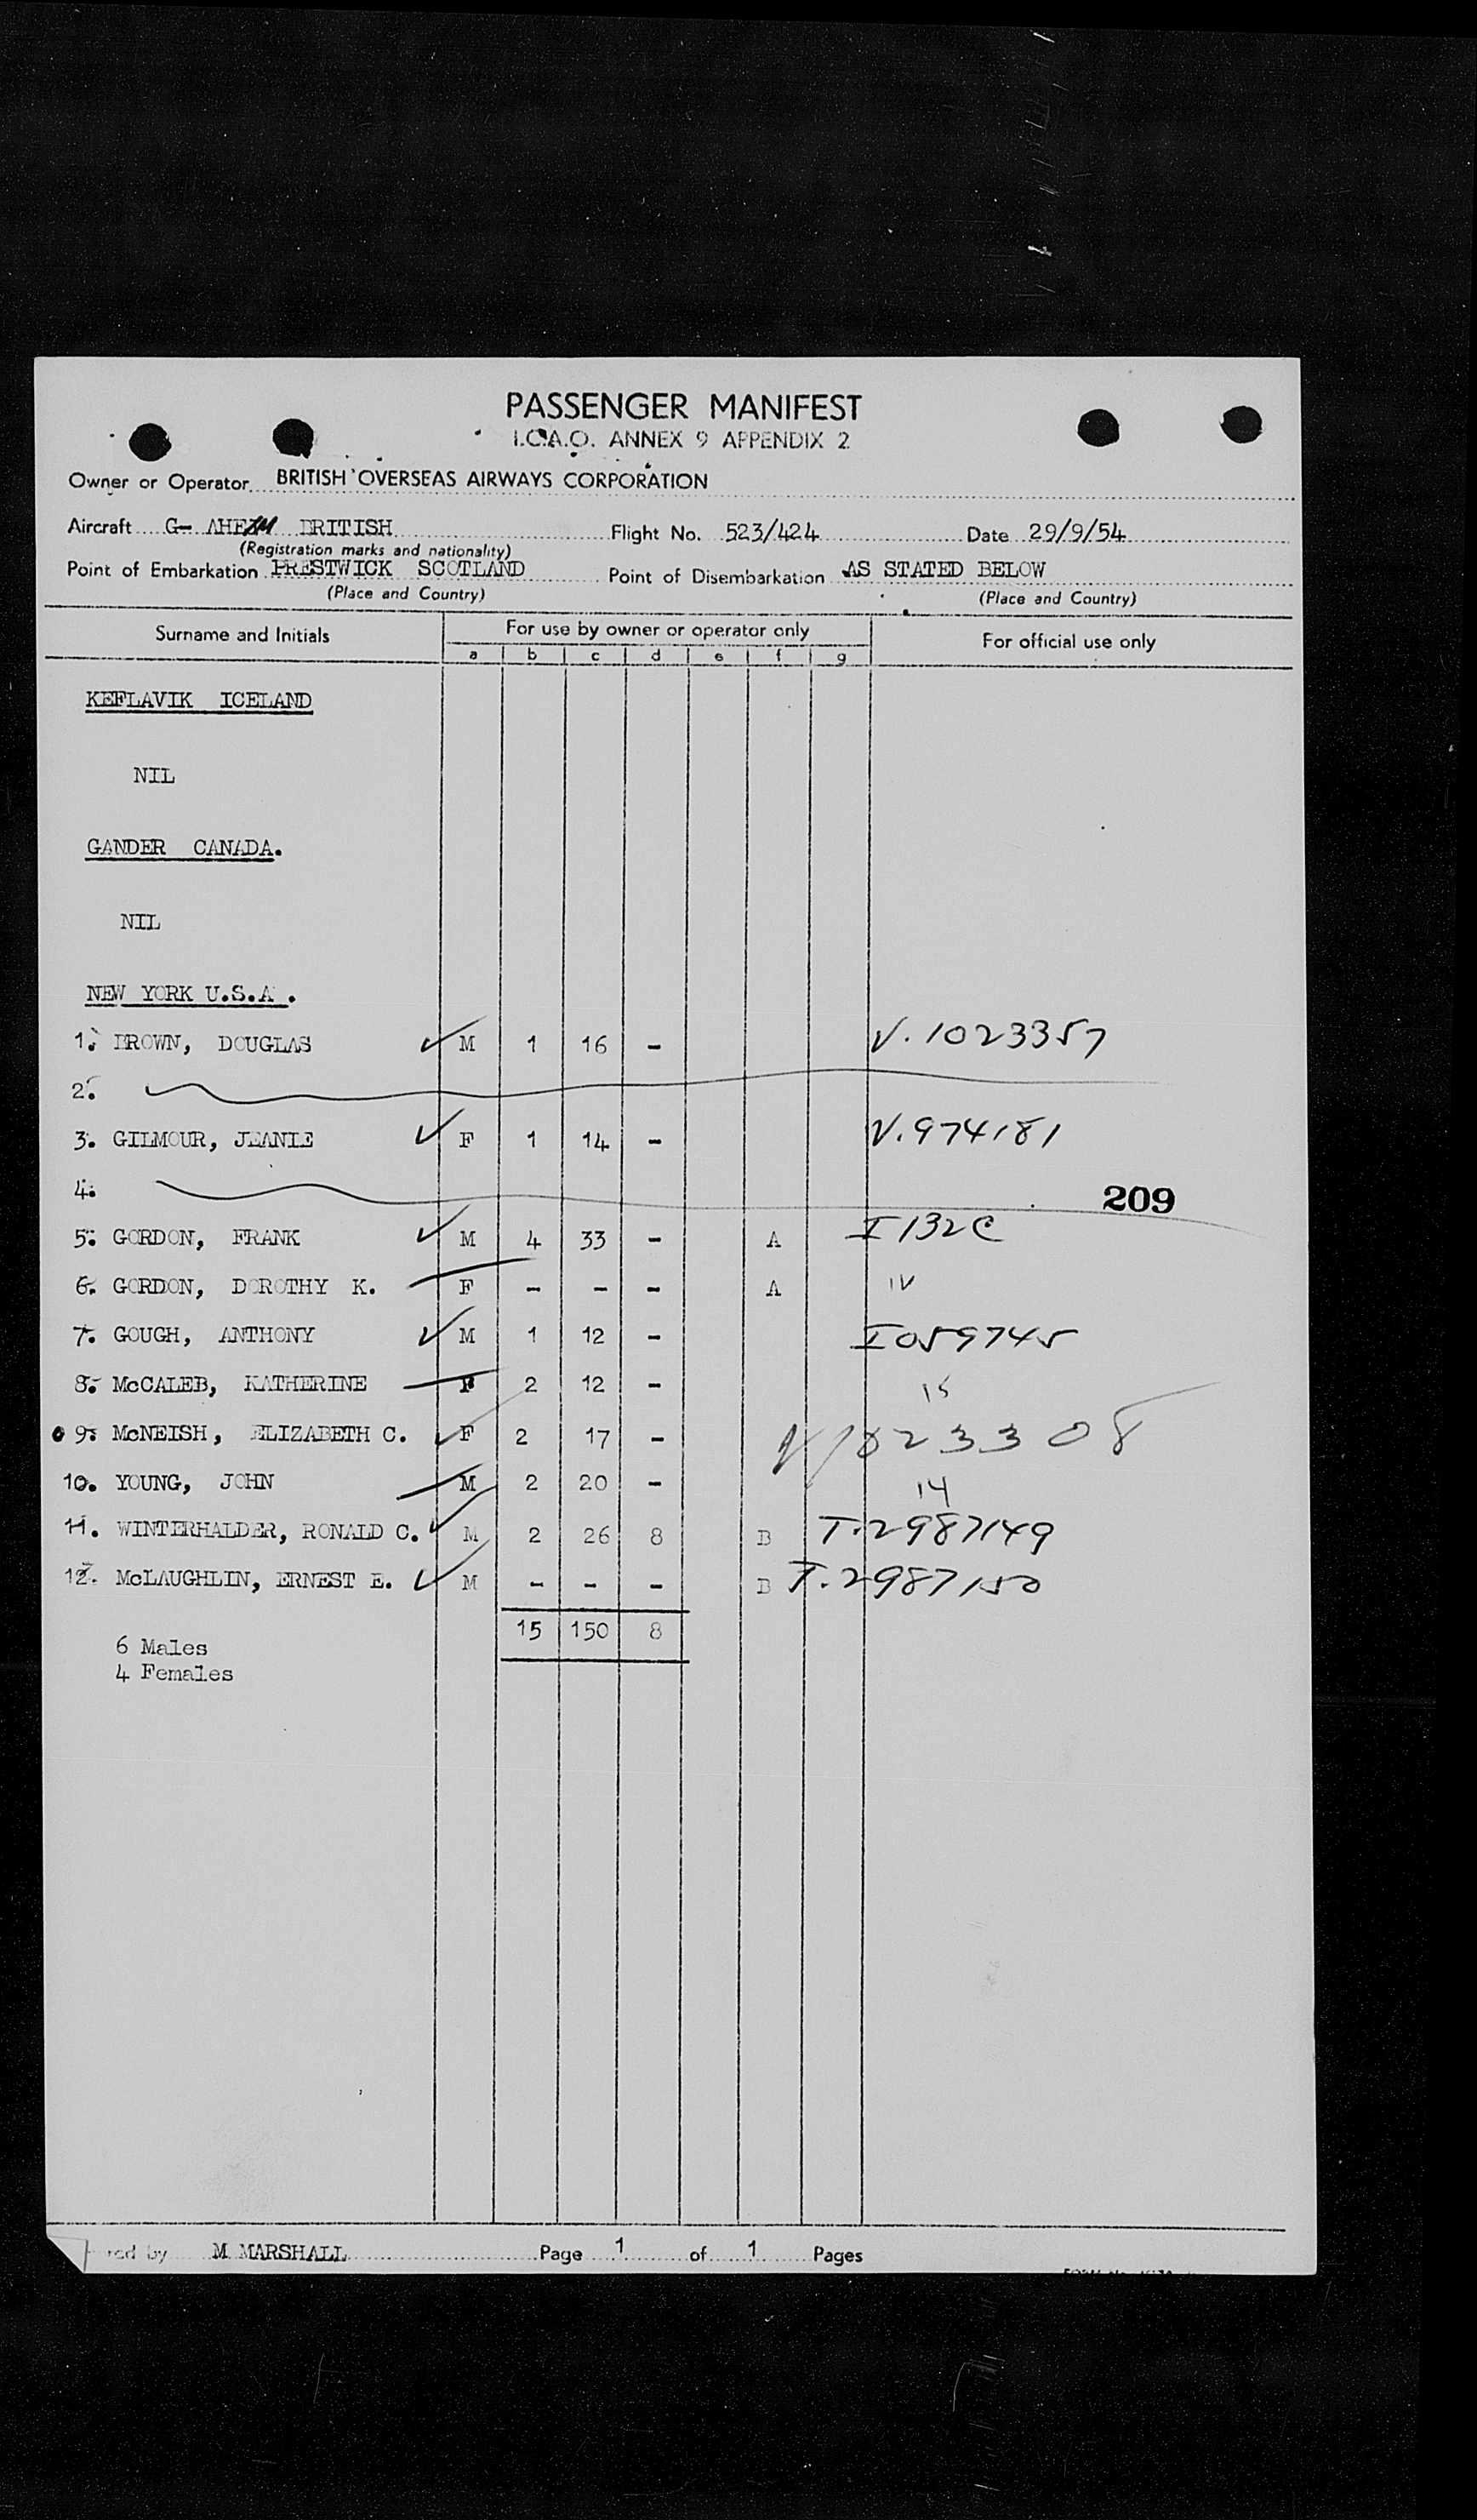 PASSENGER MANIFEST
I.C.A.O. ANNEX 9 APPENDIX 2
Owner or Operator BRITISH OVERSEAS AIRWAYS CORPORATION
Aircraft G- AHEM BRITISH Flight No. 523/424 Date 29/9/54
(Registration marks and nationality)
Point of Embarkation PRESTWICK SCOTLAND Point of Disembarkation AS STATED BELOW
(Place and Country) (Place and Country)
Surname and Initials For use by owner or operator only For official use only
a b c d e f g
KEFLAVIK ICELAND
NIL
GANDER CANADA.
NIL
NEW YORK U.S.A.
1. BROWN, DOUGLAS M 1 16 - V.1023357
2.
3. GILMOUR, JEANIE F 1 14 - V.974181
4. 209
5. GORDON, FRANK M 4 33 - A I132C
6. GORDON, DOROTHY K. F - - - A
7. GOUGH, ANTHONY M 1 12 - I059745
8. McCALEB, KATHERINE F 2 12 - 15
9. McNEISH, ELIZABETH C. F 2 17 - V1023308
10. YOUNG, JOHN M 2 20 - 14
11. WINTERHALDER, RONALD C. M 2 26 8 B T.2987149
12. McLAUGHLIN, ERNEST E. M - - - B T.2987150
15 150 8
6 Males
4 Females
red by M MARSHALL Page 1 of 1 Pages